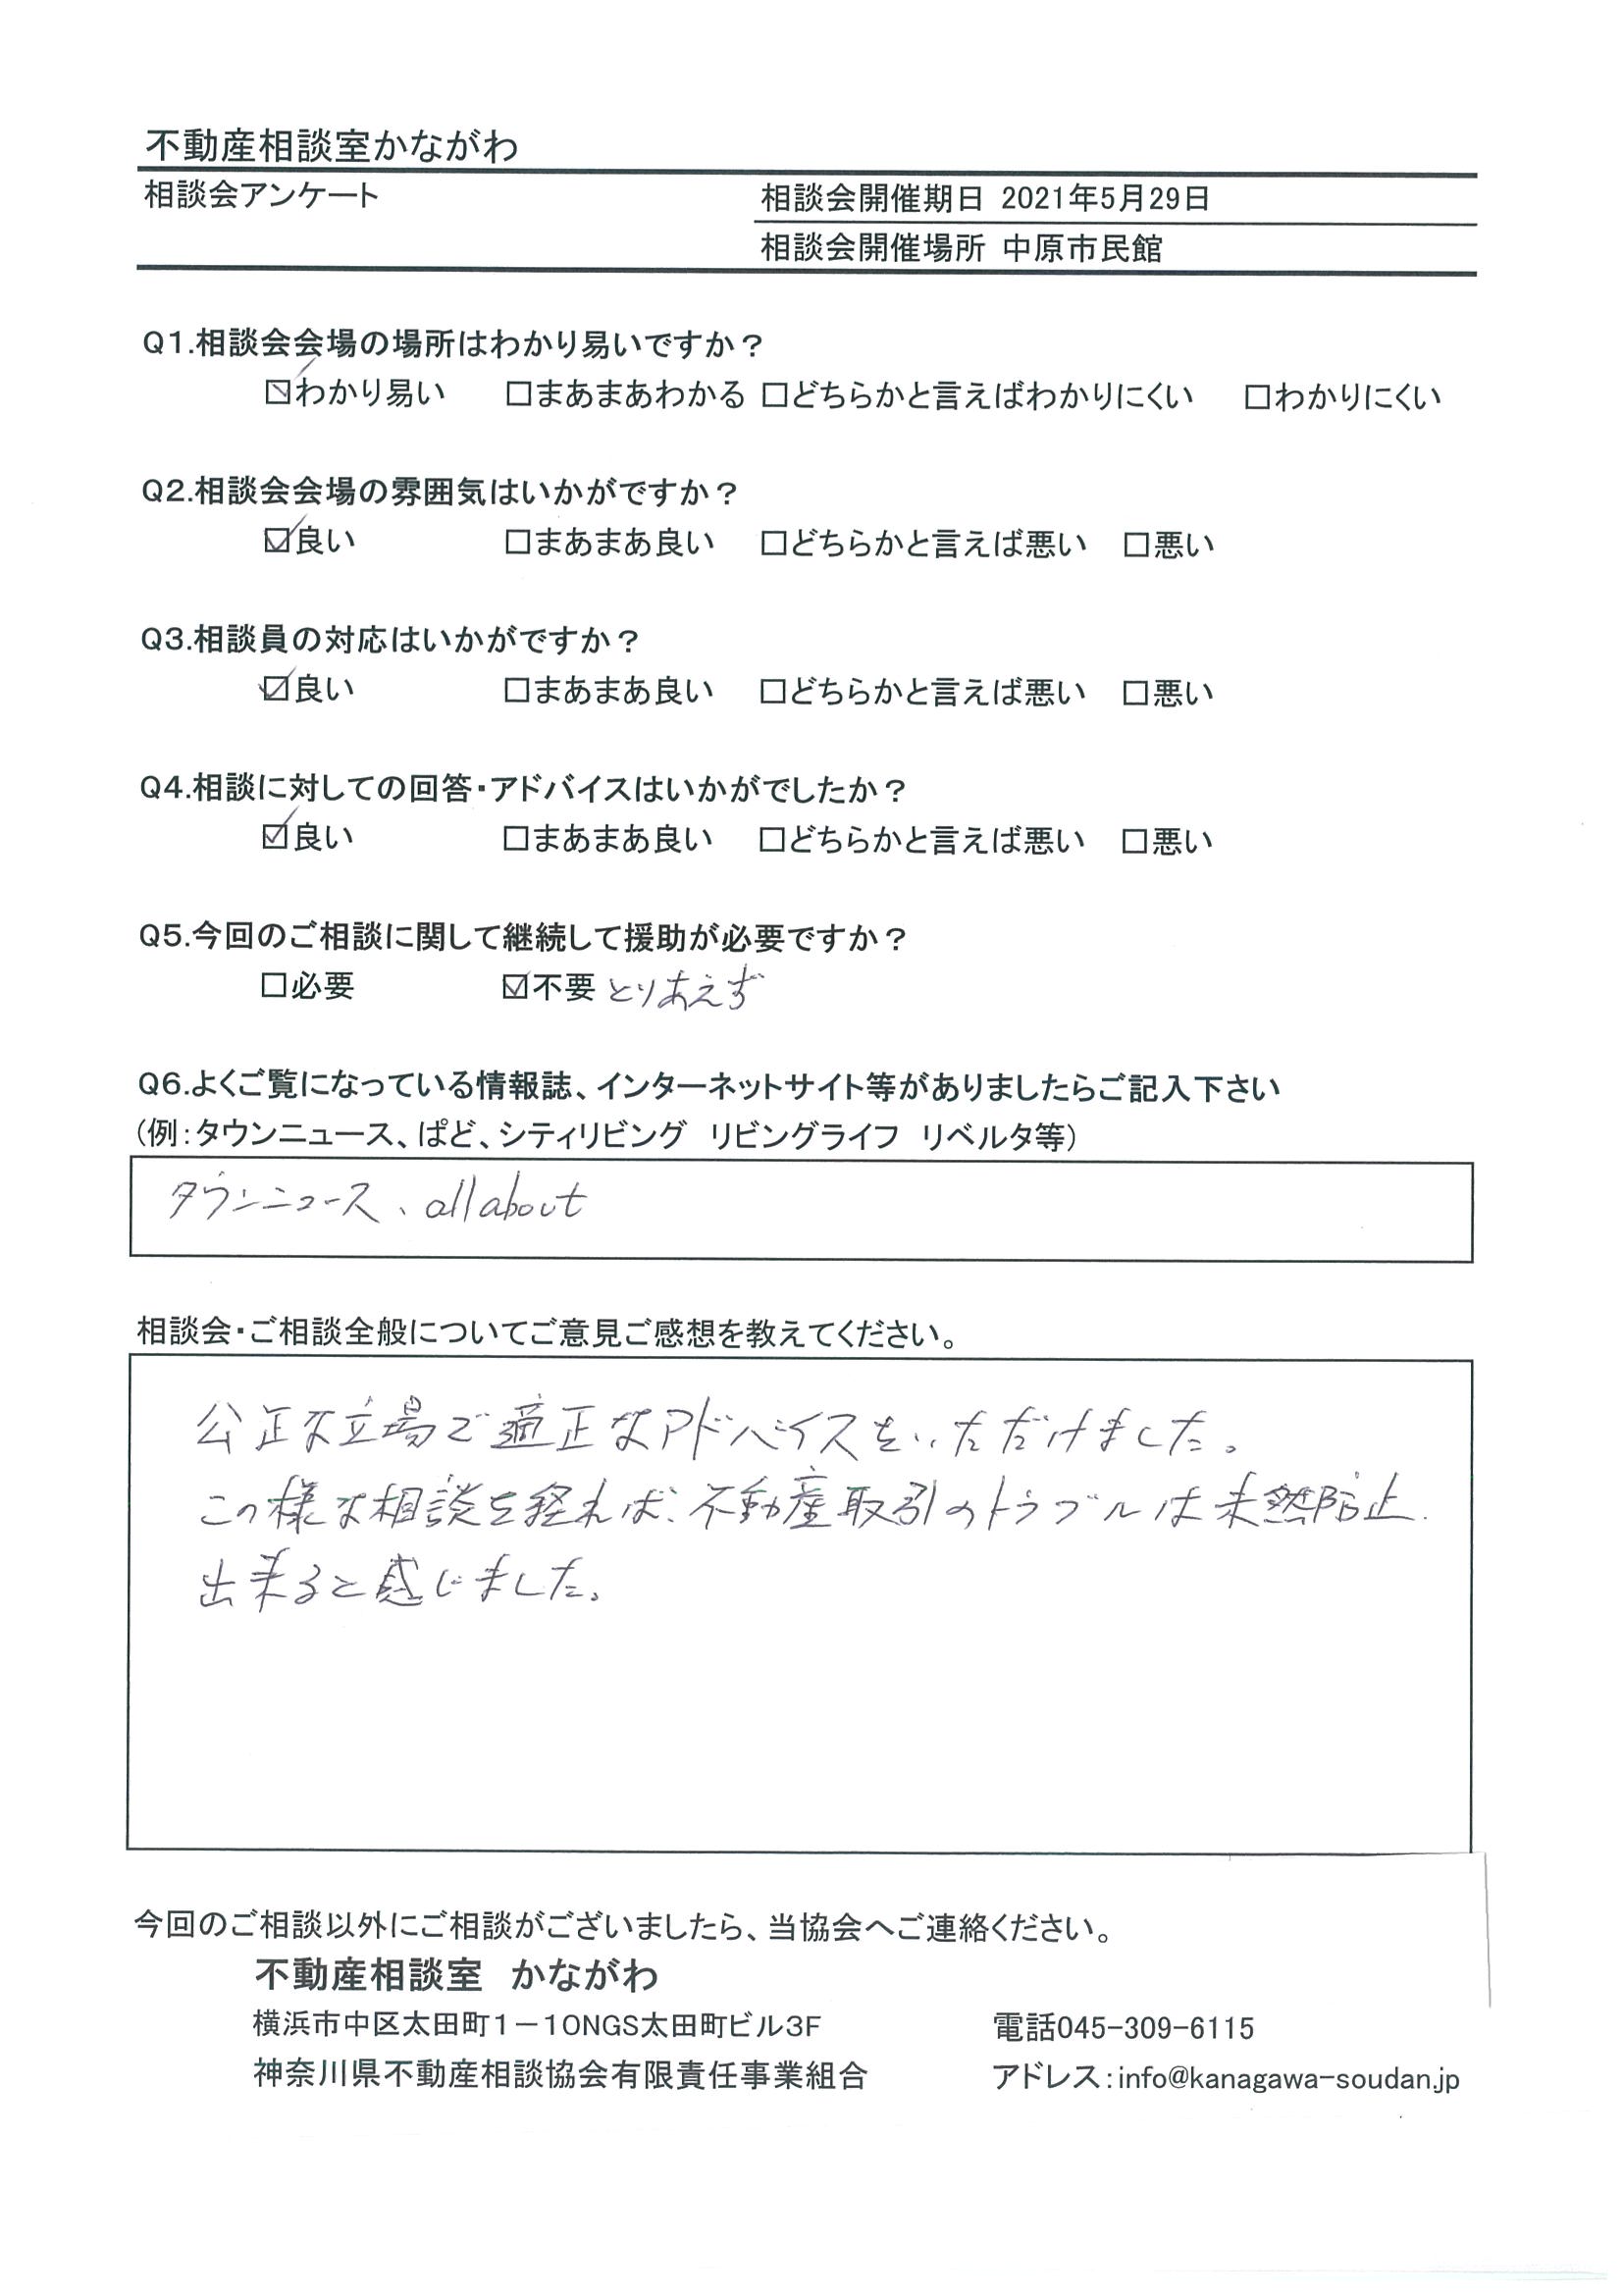 不動産相談室かながわ
相談会アンケート
相談会開催期日 2021年5月29日
相談会開催場所 中原市民館
Q1.相談会会場の場所はわかり易いですか？
☑わかり易い □まあまあわかる □どちらかと言えばわかりにくい □わかりにくい
Q2.相談会会場の雰囲気はいかがですか？
☑良い □まあまあ良い □どちらかと言えば悪い □悪い
Q3.相談員の対応はいかがですか？
☑良い □まあまあ良い □どちらかと言えば悪い □悪い
Q4.相談に対しての回答・アドバイスはいかがでしたか？
☑良い □まあまあ良い □どちらかと言えば悪い □悪い
Q5.今回のご相談に関して継続して援助が必要ですか？
□必要 ☑不要 とりあえず
Q6.よくご覧になっている情報誌、インターネットサイト等がありましたらご記入下さい
（例：タウンニュース、ぱど、シティリビング　リビングライフ　リベルタ等）
タウンニュース、allabout
相談会・ご相談全般についてご意見ご感想を教えてください。
公正な立場で適正なアドバイスをいただけました。
この様な相談を経れば、不動産取引のトラブルは未然防止
出来ると感じました。
今回のご相談以外にご相談がございましたら、当協会へご連絡ください。
不動産相談室　かながわ
横浜市中区太田町１－１０NGS太田町ビル３F 電話045-309-6115
神奈川県不動産相談協会有限責任事業組合 アドレス：info@kanagawa-soudan.jp